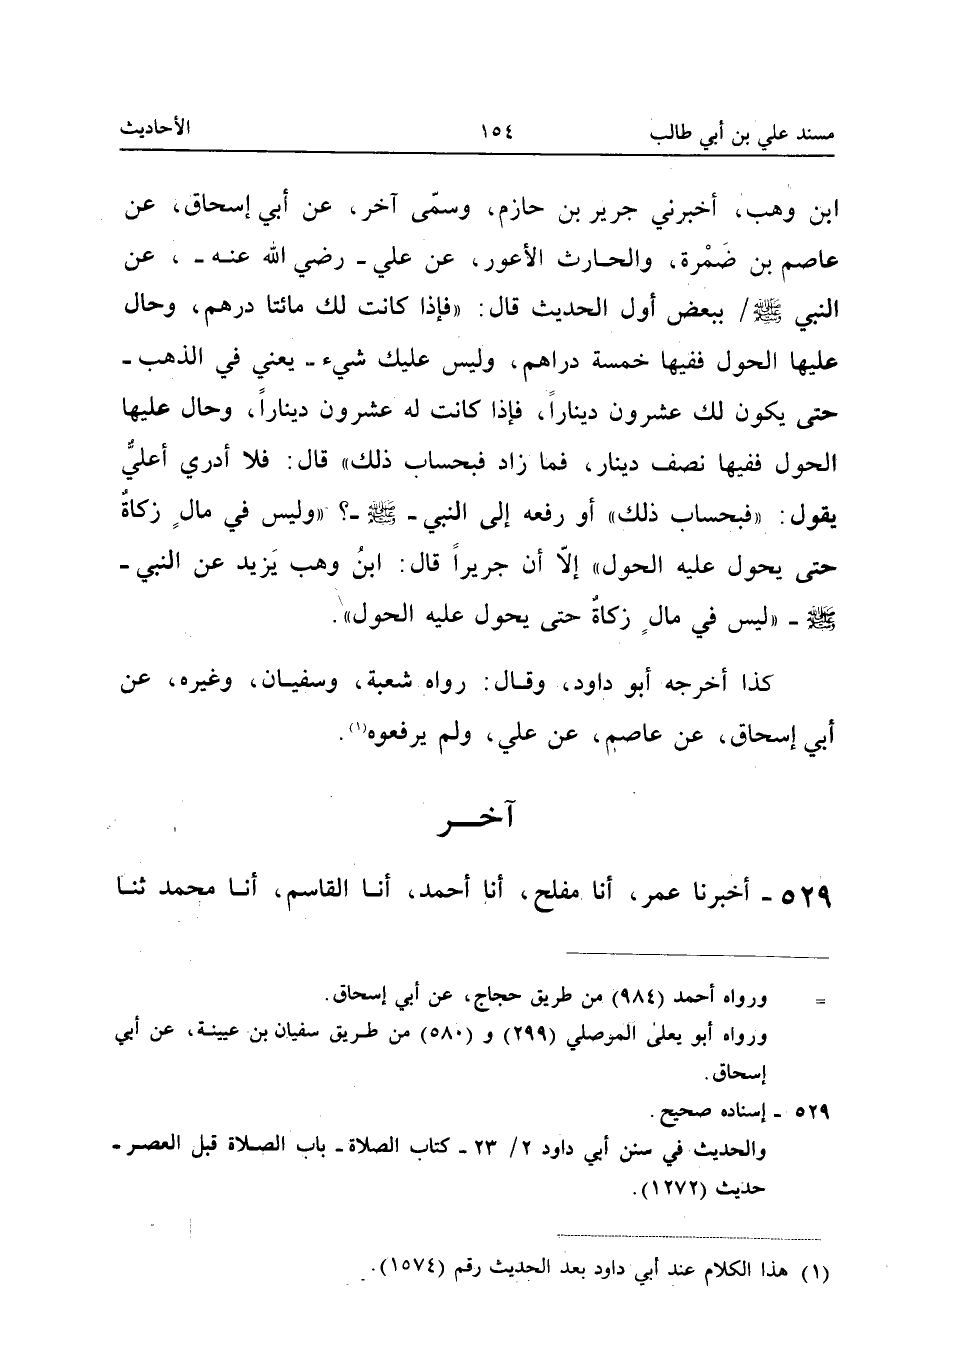 مسند علي بن أبي طالب ١٥٤ الأحاديث
ابن وهب، أخبرني جرير بن حازم، وسمّى آخر، عن أبي إسحاق، عن
عاصم بن ضَمْرة، والحارث الأعور، عن علي - رضي الله عنه - ، عن
النبي ﷺ / ببعض أول الحديث قال: «فإذا كانت لك مائتا درهم، وحال
عليها الحول ففيها خمسة دراهم، وليس عليك شيء - يعني في الذهب -
حتى يكون لك عشرون ديناراً، فإذا كانت له عشرون ديناراً، وحال عليها
الحول ففيها نصف دينار، فما زاد فبحساب ذلك» قال: فلا أدري أعليٌّ
يقول: «فبحساب ذلك» أو رفعه إلى النبي - ﷺ -؟ «وليس في مالٍ زكاةٌ
حتى يحول عليه الحول» إلّا أن جريراً قال: ابنُ وهب يَزيد عن النبي -
ﷺ - «ليس في مالٍ زكاةٌ حتى يحول عليه الحول».
كذا أخرجه أبو داود، وقال: رواه شعبة، وسفيان، وغيره، عن
أبي إسحاق، عن عاصم، عن علي، ولم يرفعوه(١).
آخر
٥٢٩ - أخبرنا عمر، أنا مفلح، أنا أحمد، أنا القاسم، أنا محمد ثنا
= ورواه أحمد (٩٨٤) من طريق حجاج، عن أبي إسحاق.
ورواه أبو يعلىٰ الموصلي (٢٩٩) و (٥٨٠) من طريق سفيان بن عيينة، عن أبي
إسحاق.
٥٢٩ - إسناده صحيح.
والحديث في سنن أبي داود ٢/ ٢٣ - كتاب الصلاة - باب الصلاة قبل العصر -
حديث (١٢٧٢).
(١) هذا الكلام عند أبي داود بعد الحديث رقم (١٥٧٤).